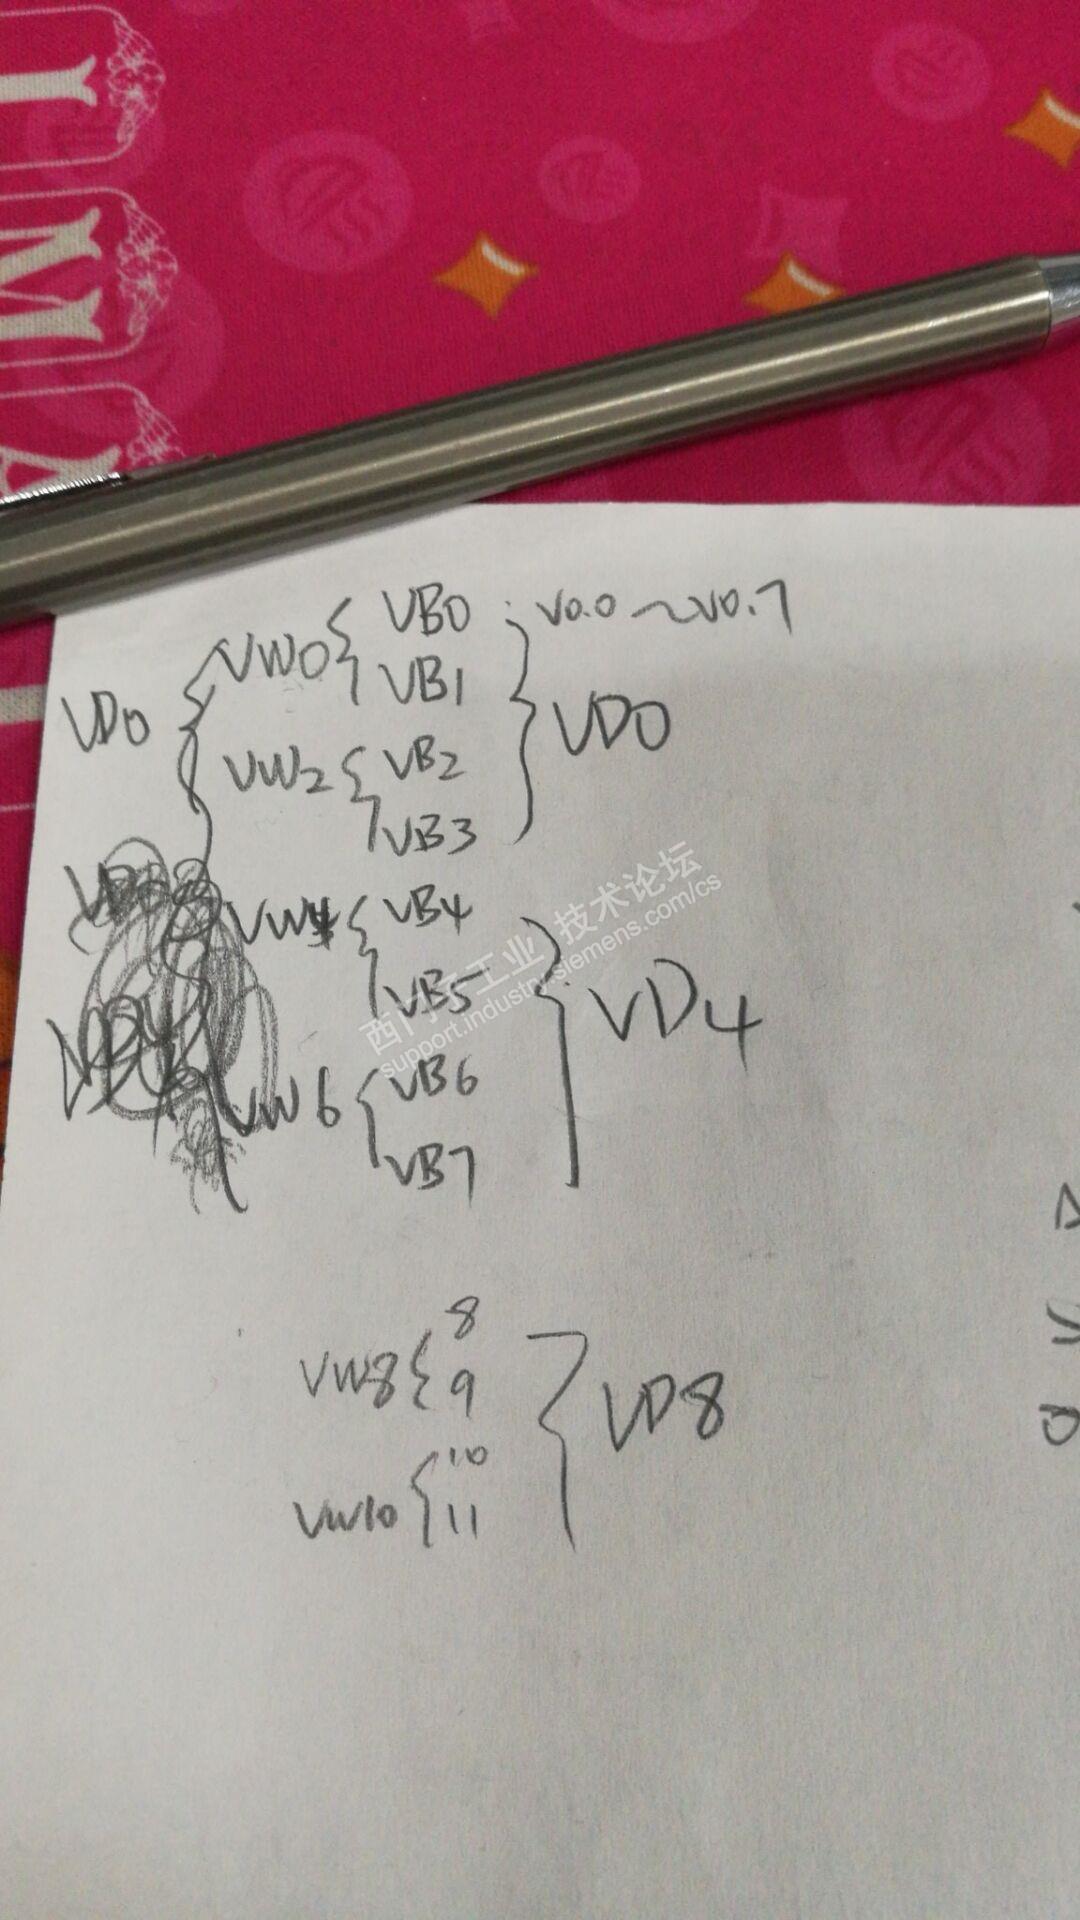 VB0 : V0.0～V0.7
VW0
VB1
VD0
VD0
VW2
VB2
VB3
VW4
VB4
VB5
VD4
VW6
VB6
VB7
8
VW8
9
VD8
10
VW10
11
西门子工业 技术论坛
support.industry.siemens.com/cs